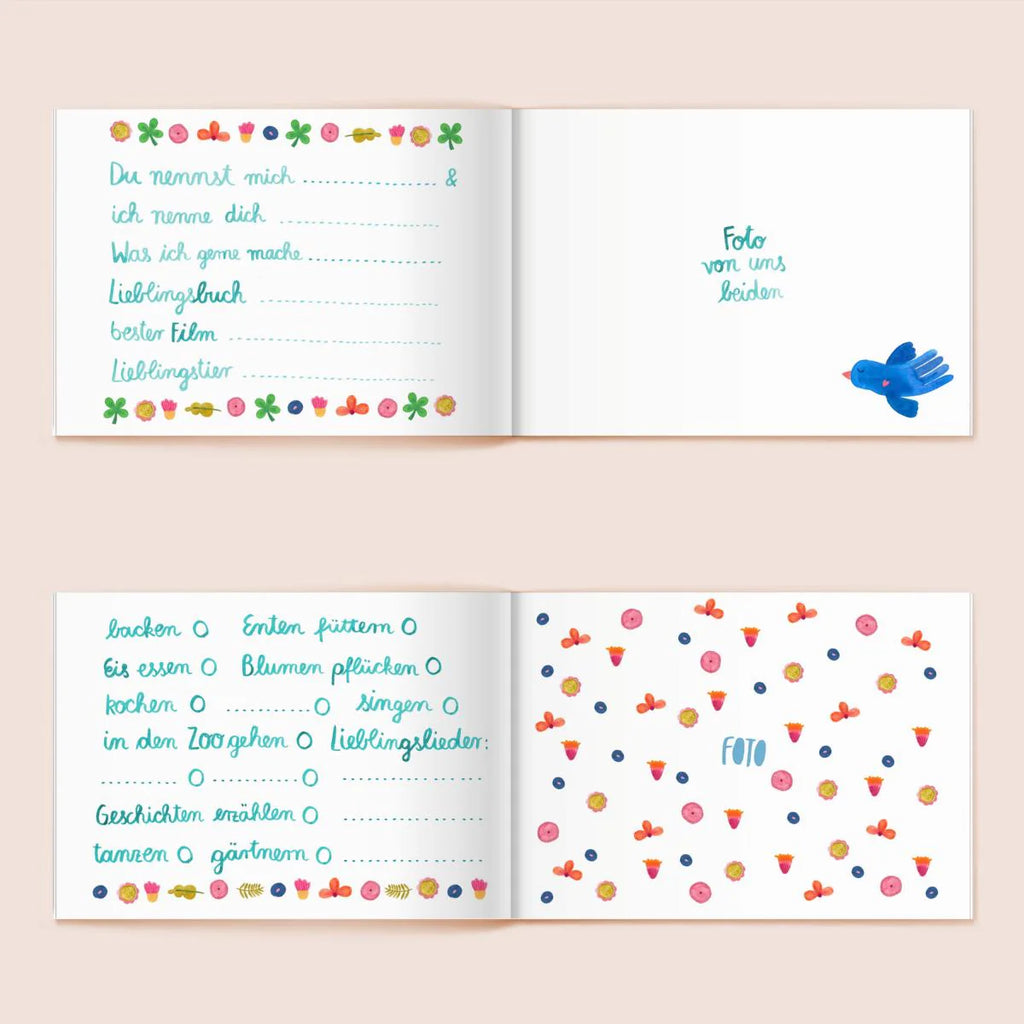 Du nennst mich ................... &
ich nenne dich ...................
Was ich gerne mache ...................
Lieblingsbuch ...................
bester Film ...................
Lieblingstier ...................
Foto
von uns
beiden
backen O Enten füttern O
Eis essen O Blumen pflücken O
kochen O ............ O singen O
in den Zoo gehen O Lieblingslieder:
............ O ............ O ...................
Geschichten erzählen O ...................
tanzen O gärtnern O ...................
FOTO